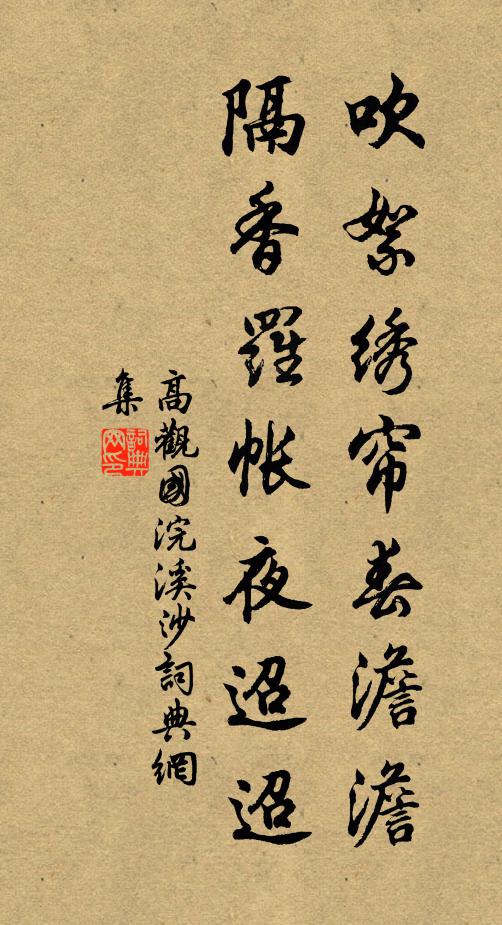 吹絮綉帘春澹澹
隔香羅帳夜迢迢
高觀國浣溪沙詞典網
集
詞典
网印